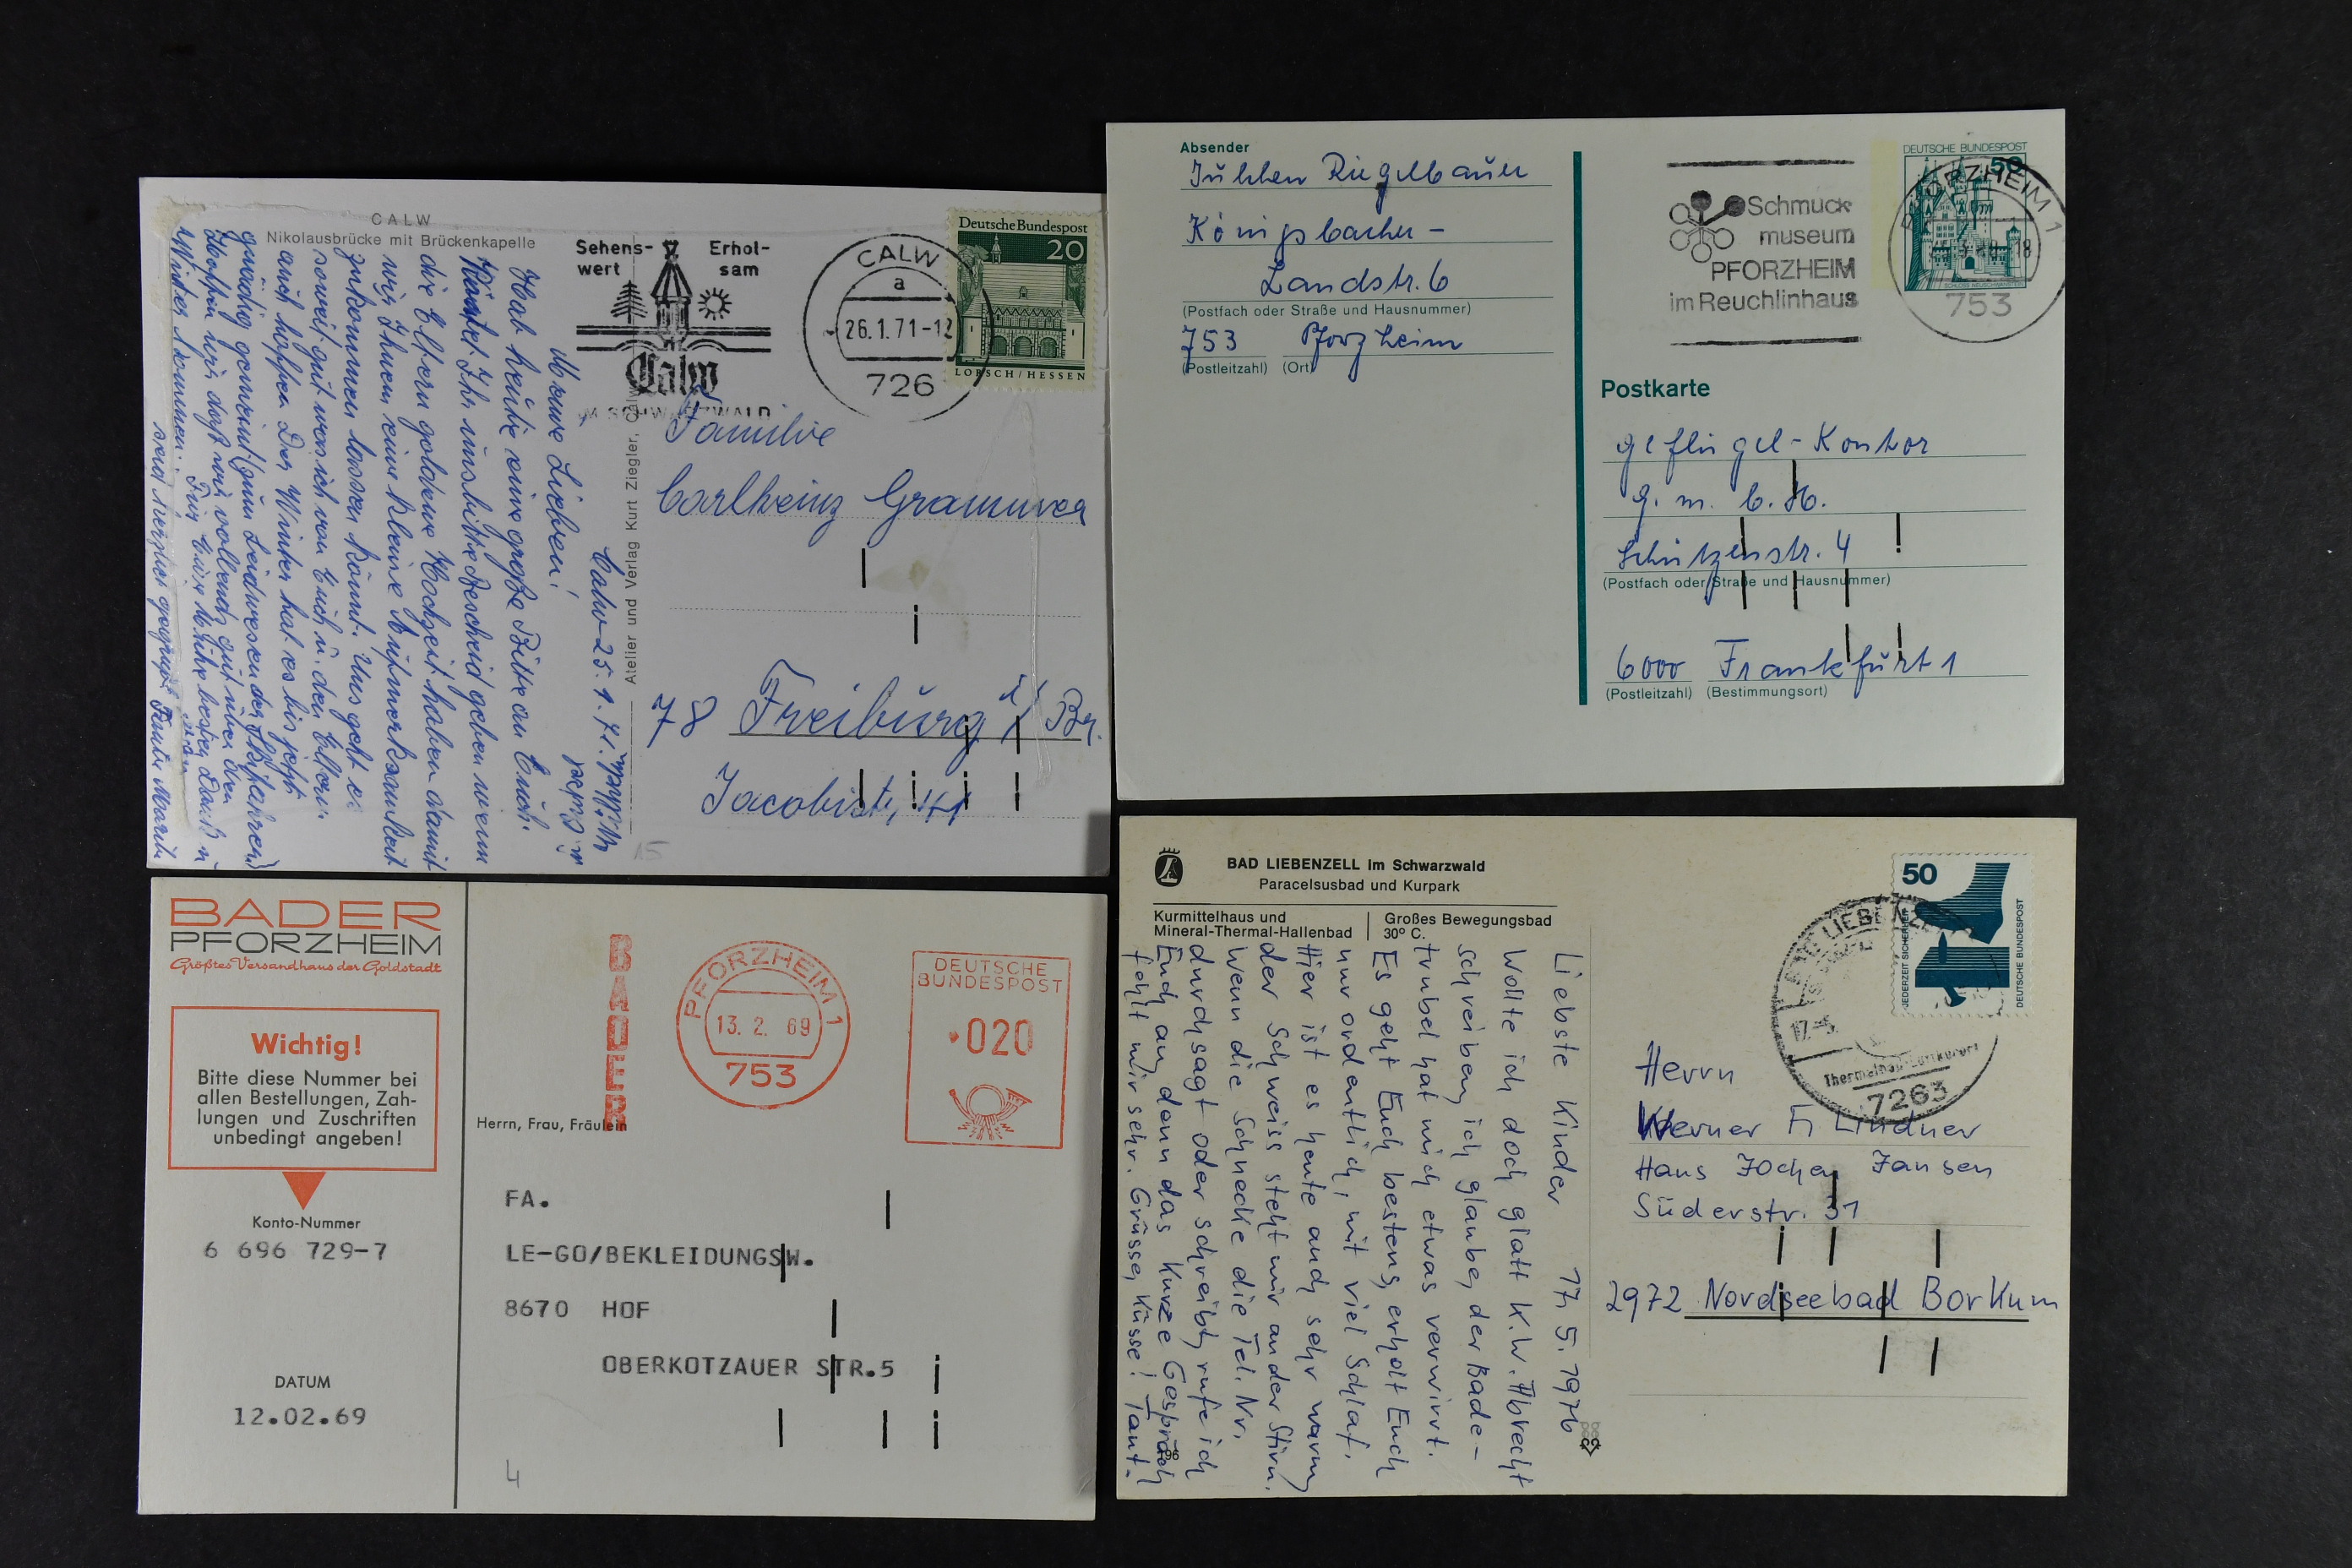 CALW
Nikolausbrücke mit Brückenkapelle
Sehens-
wert
Erhol-
sam
Calw
IM SCHWARZWALD
CALW
a
26.1.71-12
726
Deutsche Bundespost
20
LORSCH/HESSEN
Atelier und Verlag Kurt Ziegler, Calw
Calw 25.1.71.
Meine Lieben!
Hab heute eine große Bitte an Euch.
Könntet Ihr uns bitte Bescheid geben wenn
die Eltern goldene Hochzeit haben damit
wir Ihnen eine kleine Aufmerksamkeit
zukommen lassen könnt. Uns geht es
soweit gut was ich von Euch u. den Eltern
auch hoffen. Der Winter hat es bis jetzt
gnädig gemeint (zum Leidwesen der Skifahrer)
Hoffen wir daß wir vollends gut über den
Winter kommen.
Für Eure Mühe besten Dank u
seid herzlich gegrüßt Tante Maria
Familie
Carlheinz Grammer
78 Freiburg i/Br.
Jacobistr, 41
15
Absender
Königsbacher-
Landstr. 6
(Postfach oder Straße und Hausnummer)
753 Pforzheim
(Postleitzahl) (Ort)
Schmuck
museum
PFORZHEIM
im Reuchlinhaus
DEUTSCHE BUNDESPOST
50
PFORZHEIM 1
18
753
Postkarte
Geflügel-Kontor
G.m.b.H.
Schützenstr. 4
(Postfach oder Straße und Hausnummer)
6000 Frankfurt 1
(Postleitzahl) (Bestimmungsort)
BADER
PFORZHEIM
Größtes Versandhaus der Goldstadt
Wichtig!
Bitte diese Nummer bei
allen Bestellungen, Zah-
lungen und Zuschriften
unbedingt angeben!
Konto-Nummer
6 696 729-7
DATUM
12.02.69
BADER
PFORZHEIM 1
13.2.69
753
DEUTSCHE
BUNDESPOST
020
Herrn, Frau, Fräulein
FA.
LE-GO/BEKLEIDUNGSW.
8670 HOF
OBERKOTZAUER STR.5
4
BAD LIEBENZELL im Schwarzwald
Paracelsusbad und Kurpark
Kurmittelhaus und
Mineral-Thermal-Hallenbad
Großes Bewegungsbad
30° C.
Liebste Kinder 17. 5. 1976
Wollte ich doch glatt K.W. Albrecht
schreiben, ich glaube, der Bade-
trubel hat mich etwas verwirrt.
Es geht Euch bestens, erholt Euch
nur ordentlich, mit viel Schlaf.
Hier ist es heute auch sehr warm
der Schweiss steht mir an der Stirn.
Wenn die Schnecke die Tel. Nr.
durchsagt oder schreibt, rufe ich
Euch an, denn das kurze Gespräch
fehlt mir sehr. Grüsse, Küsse! Tant-
96
50
JEDERZEIT SICHERHEIT
DEUTSCHE BUNDESPOST
BAD LIEBENZELL
17.-5.
7263
Herrn
Werner F. Lindner
Haus Jochen Jansen
Süderstr. 31
2972 Nordseebad Borkum